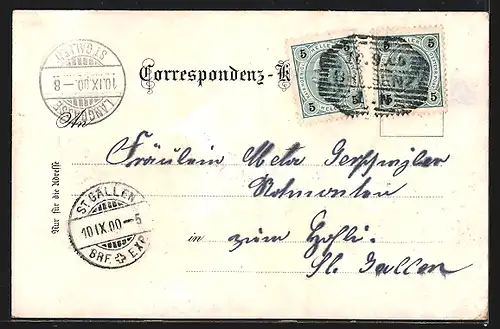 ST. GALLEN
10.IX.00.–8
LANGGASSE
Correspondenz-K
5 5
5 5
HELLER
An
Fräulein Meta
Rotmonten
in zum Höfli.
St. Gallen
Nur für die Adresse
ST. GALLEN
10.IX.00–5
BRF. EXP.